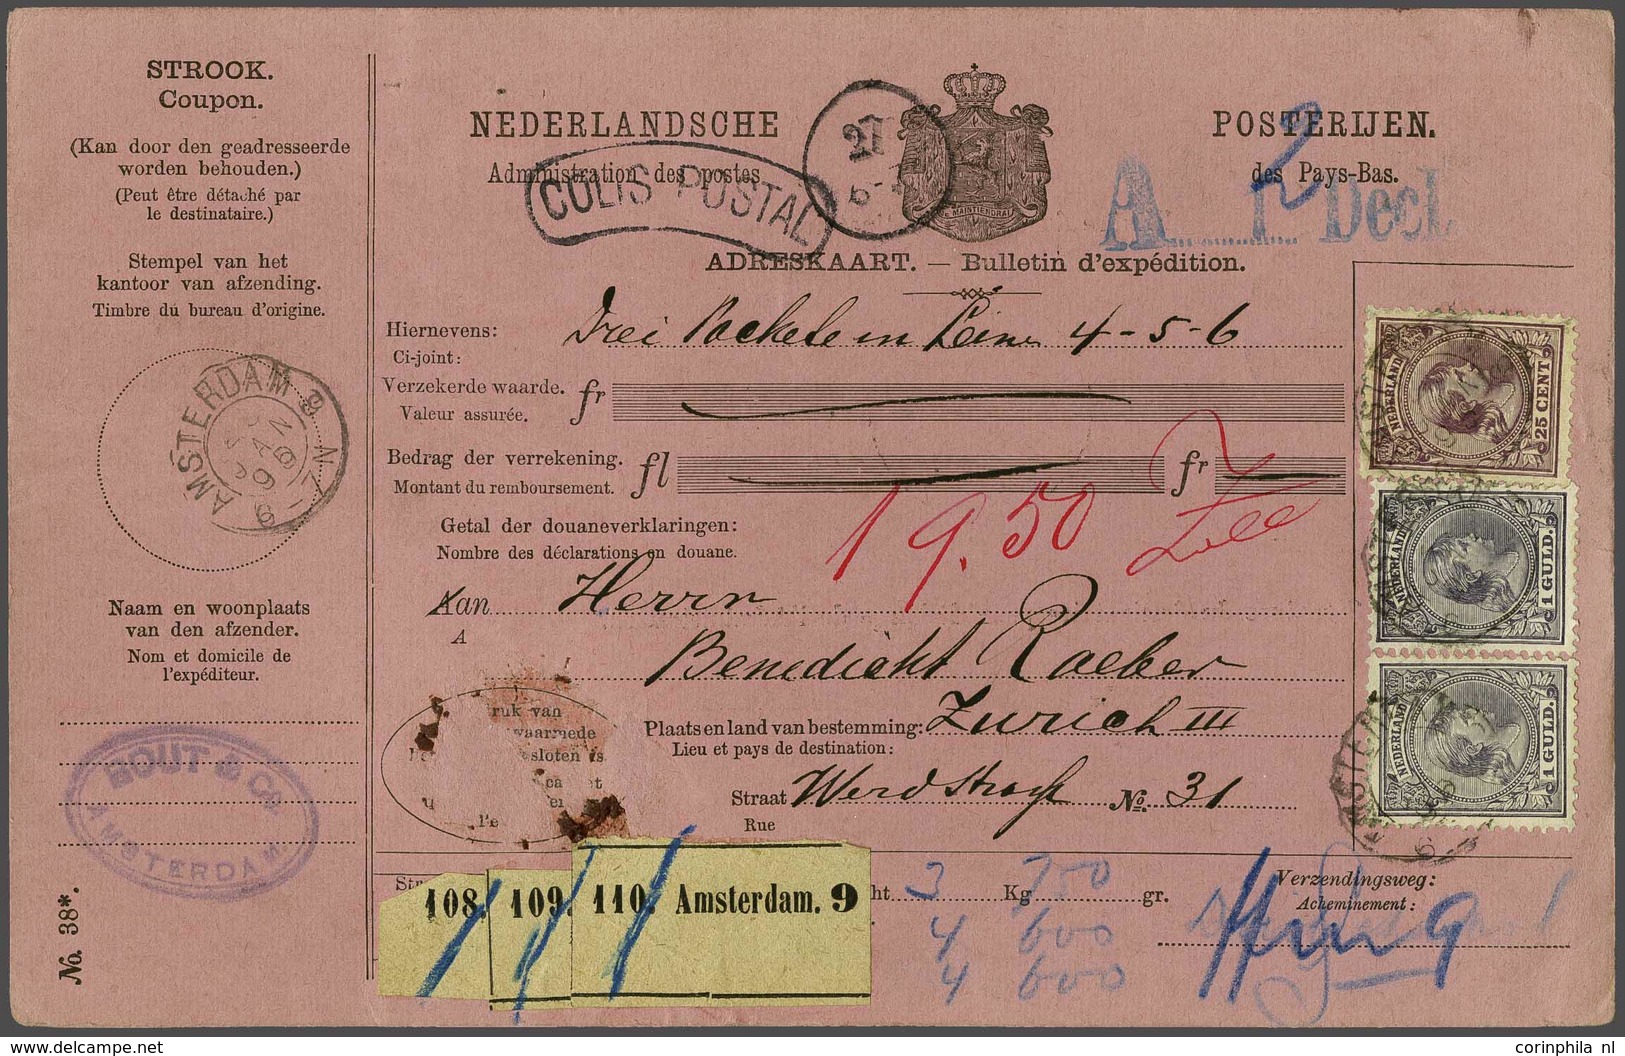 STROOK.
Coupon.
(Kan door den geadresseerde
worden behouden.)
(Peut être détaché par
le destinataire.)
Stempel van het
kantoor van afzending.
Timbre du bureau d'origine.
AMSTERDAM 9
Naam en woonplaats
van den afzender.
Nom et domicile de
l'expéditeur.
BOUT & Co.
AMSTERDAM.
No. 38*.
NEDERLANDSCHE POSTERIJEN.
Administration des postes des Pays-Bas.
COLIS POSTAL
27
2
A 1 Decl.
JE MAINTIENDRAI
ADRESKAART. — Bulletin d'expédition.
Hiernevens: Drei Packete in Leine 4-5-6
Ci-joint:
Verzekerde waarde. fr
Valeur assurée.
Bedrag der verrekening. fl fr
Montant du remboursement.
19.50
Getal der douaneverklaringen:
Nombre des déclarations en douane.
Aan Herrn
A
Benedicht Raeber
Plaats en land van bestemming: Zurich III
Lieu et pays de destination:
Straat Werdstrasse No. 31
Rue
ruk van
waarmede
sloten is
NEDERLAND 25 CENT
NEDERLAND 1 GULD.
NEDERLAND 1 GULD.
108. 109. 110. Amsterdam. 9
3 Kg 750 gr.
4 600
4 600
Verzendingsweg:
Acheminement:
corinphila nl